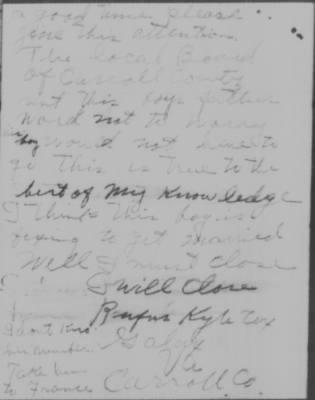 a good time please
give this attention.
The Local Board
of Carroll County
sent this boys father
word not to worry
his boy would not have to
go This is true to the
best of My Knowledge
I think this boy is
trying to get married
Well I must close
I will Close
Rufus Kyle Cox
I dont Know
his number.
Galax
Va
Take him
to France
Carroll Co.